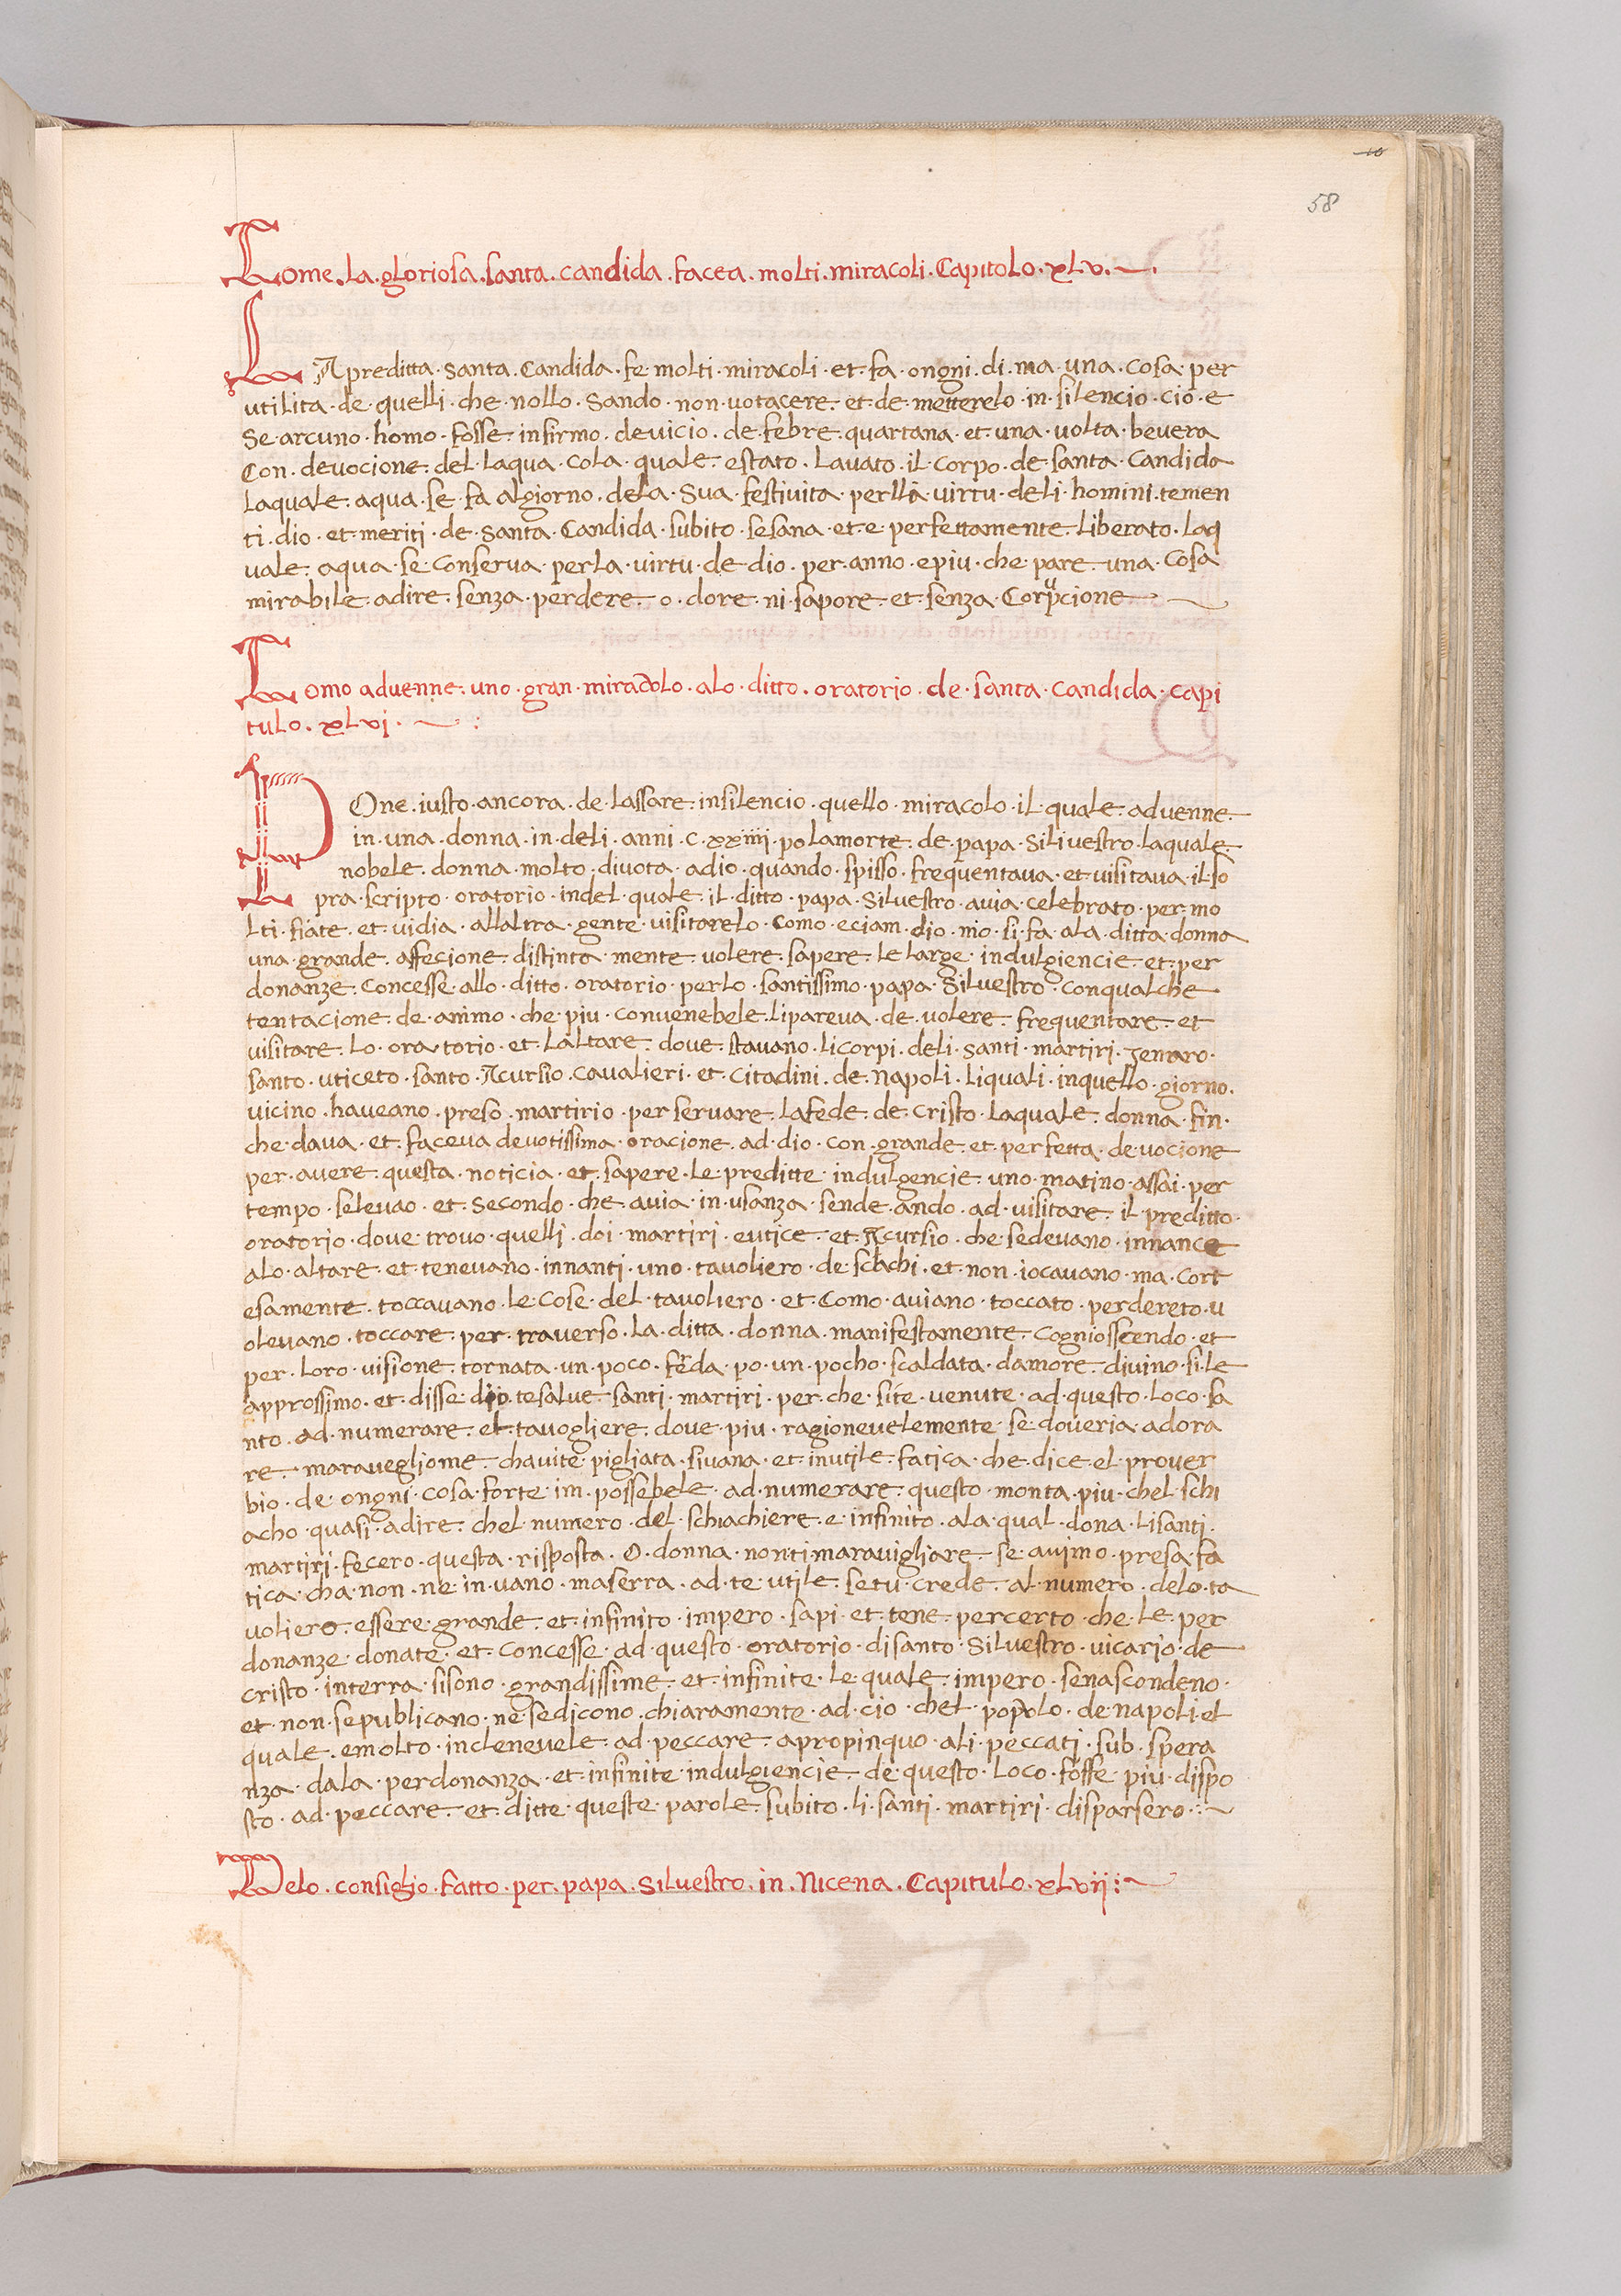 10
58
Come . la . gloriosa . santa . candida . facea . molti . miracoli . Capitolo . xlv .
LA preditta · santa . Candida . fe molti · miracoli · et · fa · ongni · di · ma · una · cosa · per
utilita · de · quelli · che · nollo · sando · non · votacere · et · de · metterelo · in · silencio · cio · e
se · arcuno · homo · fosse · infirmo · de vicio · de · febre · quartana · et · una · volta · bevera
Con · devocione · del · laqua · cola · quale · estato · lavato · il · corpo · de · santa · Candida
laquale · aqua · se · fa · al giorno · dela · sua · festivita · perlla · virtu · deli · homini · temen
ti · dio · et · meriti · de · santa · Candida · subito · se sana · et · e perfettamente · liberato · laq
uale · aqua · se · conserva · perla · virtu · de · dio · per · anno · epiu · che · pare · una · cosa
mirabile · adire · senza · perdere · o · dore · ni · sapore · et · senza · Corrupcione
Como advenne · uno · gran · miracolo · alo · ditto · oratorio · de · santa · candida · capi
tulo . xlvi ·
One · iusto · ancora · de · lassare · insilencio · quello · miracolo · il · quale · advenne
in · una · donna · in · deli · anni · c · xxiiii · po lamorte · de · papa · silivestro · laquale
nobele · donna · molto · divota · adio · quando · spisso · frequentava · et · visitava · il · so
pra · scripto · oratorio · indel · quale · il · ditto · papa · silvestro · avia · celebrato · per · mo
lti · fiate · et · vidia · allaltra · gente · visitarelo · como · eciam · dio · nio · si · fa · ala · ditta · donna
una · grande · affecione · distinta · mente · volere · sapere · le large · indulgiencie · et · per
donanze · concesse · allo · ditto · oratorio · perlo · santissimo · papa · silvestro · conqualche
tentacione · de · animo · che · piu · convenebele · lipareva · de · volere · frequentare · et
visitare · lo · oratorio · et · laltare · dove · stavano · licorpi · deli · santi · martiri · Jennaro ·
santo · uticeto · santo · Acursio · cavalieri · et · citadini · de · napoli · liquali · inquello · giorno ·
vicino · haveano · preso · martirio · per servare · lafede · de · cristo · laquale · donna · fin ·
che · dava · et · faceva devotissima · oracione · ad · dio · con · grande · et · perfetta · devocione
per · avere · questa · noticia · et · sapere · le · preditte · indulgencie · uno · matino · assai · per
tempo · selevao · et · secondo · che · avia · in · usanza · sende · ando · ad · visitare · il · preditto ·
oratorio · dove · trovo · quelli · doi · martiri · eutice · et · Acursio · che · sedevano · innance
alo · altare · et · tenevano · innanti · uno · tavoliero · de · schachi · et · non · iocavano · ma · cort
esamente · toccavano · le cose · del · tavoliero · et · como · aviano · toccato · perdereto · v
olevano · toccare · per · traverso · la · ditta · donna · manifestamente · cogniosscendo · et
per · loro · visione · tornata · un · poco · freda · po · un · pocho · scaldata · damore · divino · si · le
approssimo · et · disse · dio · tesalve · santi · martiri · per · che · site · venute · ad · questo · loco · sa
nto · ad · numerare · el · tavogliere · dove · piu · ragionevelemente · se · doveria · adora
re · maravegliome · chavite · pigliata · sivana · et · inutile · fatica · che · dice · el · prover
bio · de · ongni · cosa · forte · im · possebele · ad · numerare · questo · monta · piu · chel · schi
acho · quasi · adire · chel · numero · del · schiachiere · e · infinito · ala · qual · dona · lisanti ·
martiri · fecero · questa · risposta · O · donna · nonti maravigliare · se · avimo · presa · fa
tica · cha · non · ne · in · vano · maserra · ad · te · utile · setu · crede · al · numero · delo · ta
voliero · essere · grande · et · infinito · impero · sapi · et · tene · percerto · che · le · per
donanze · donate · et · concesse · ad · questo · oratorio · disanto · silvestro · vicario · de
cristo · interra · sisono · grandissime · et · infinite · le quale · impero · senascondeno ·
et · non · sepublicano · ne · sedicono · chiaramente · ad · cio · chel · popolo · de napoli · el
quale · emolto · inclenevele · ad · peccare · apropinquo · ali · peccati · sub · spera
nza · dala · perdonanza · et · infinite · indulgiencie · de · questo · loco · fosse · piu · dispo
sto · ad · peccare · et · ditte · queste · parole · subito · li · santi · martiri · disparsero ·
Delo · consiglio · fatto · per · papa · silvestro · in · Nicena · Capitulo · xlvij :